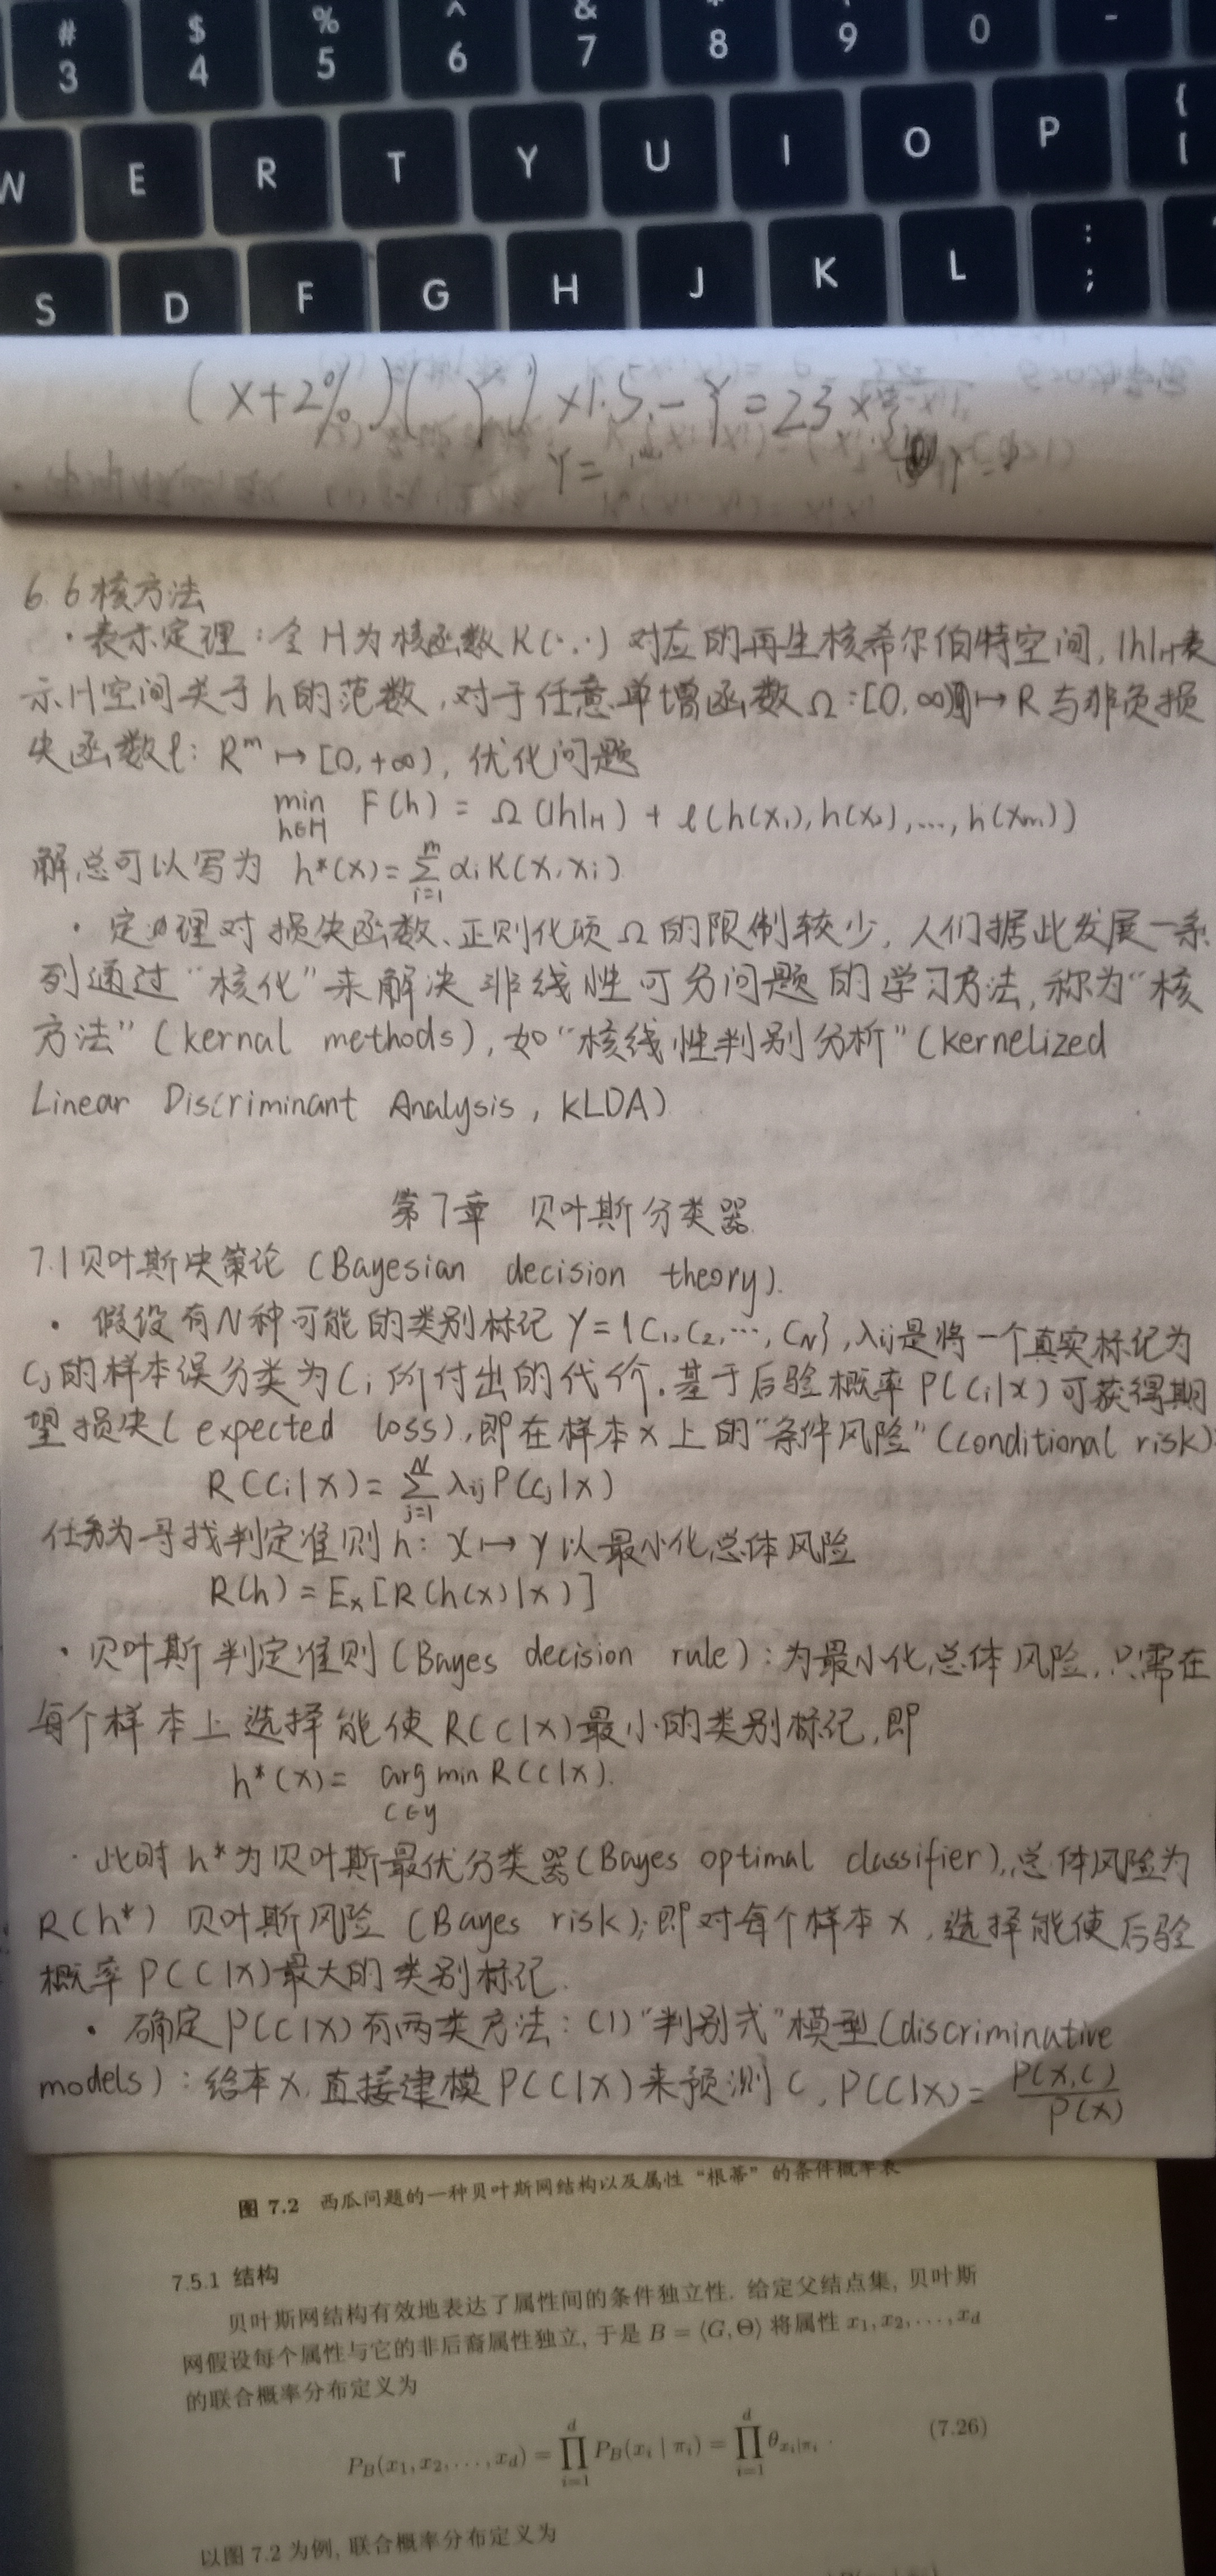 # $ % ^ & * 
3 4 5 6 7 8 9 0 -
W E R T Y U I O P { [
S D F G H J K L : ;
(x+2%)( Y ) x1.5 - Y = 23 x
Y =
6.6核方法
·表示定理:令H为核函数K(·,·)对应的再生核希尔伯特空间,|h|H表
示H空间关于h的范数,对于任意单增函数Ω:[0,∞]↦R与非负损
失函数ℓ: R^m ↦ [0,+∞), 优化问题
min F(h) = Ω(|h|H) + ℓ(h(x₁),h(x₂),...,h(xm))
h∈H
解总可以写为 h*(x)=∑_{i=1}^{m} αi K(x,xi)
·定理对损失函数、正则化项Ω的限制较少,人们据此发展一系
列通过“核化”来解决非线性可分问题的学习方法,称为“核
方法”(kernal methods),如“核线性判别分析”(Kernelized
Linear Discriminant Analysis, KLDA)
第7章 贝叶斯分类器
7.1贝叶斯决策论 (Bayesian decision theory).
·假设有N种可能的类别标记Y={C₁,C₂,…,CN},λij是将一个真实标记为
Cj的样本误分类为Ci所付出的代价.基于后验概率P(Ci|x)可获得期
望损失(expected loss),即在样本x上的“条件风险”(conditional risk):
R(Ci|x)=∑_{j=1}^{N} λij P(Cj|x)
任务为寻找判定准则h: X↦Y以最小化总体风险
R(h) = Ex[R(h(x)|x)]
·贝叶斯判定准则(Bayes decision rule):为最小化总体风险,只需在
每个样本上选择能使R(C|x)最小的类别标记,即
h*(x)= arg min R(C|x).
C∈y
·此时h*为贝叶斯最优分类器(Bayes optimal classifier),总体风险为
R(h*) 贝叶斯风险 (Bayes risk);即对每个样本x,选择能使后验
概率P(C|x)最大的类别标记.
·确定P(C|x)有两类方法:(1)“判别式”模型(discriminative
models):给本x,直接建模P(C|x)来预测C, P(C|x)= P(x,C)/P(x)
图 7.2 西瓜问题的一种贝叶斯网结构以及属性“根蒂”的条件概率表
7.5.1 结构
贝叶斯网结构有效地表达了属性间的条件独立性. 给定父结点集, 贝叶斯
网假设每个属性与它的非后裔属性独立, 于是 B = ⟨G,Θ⟩ 将属性 x₁,x₂,...,xd
的联合概率分布定义为
PB(x₁,x₂,...,xd) = ∏_{i=1}^{d} PB(xi | πi) = ∏_{i=1}^{d} θ_{xi|πi} . (7.26)
以图 7.2 为例, 联合概率分布定义为